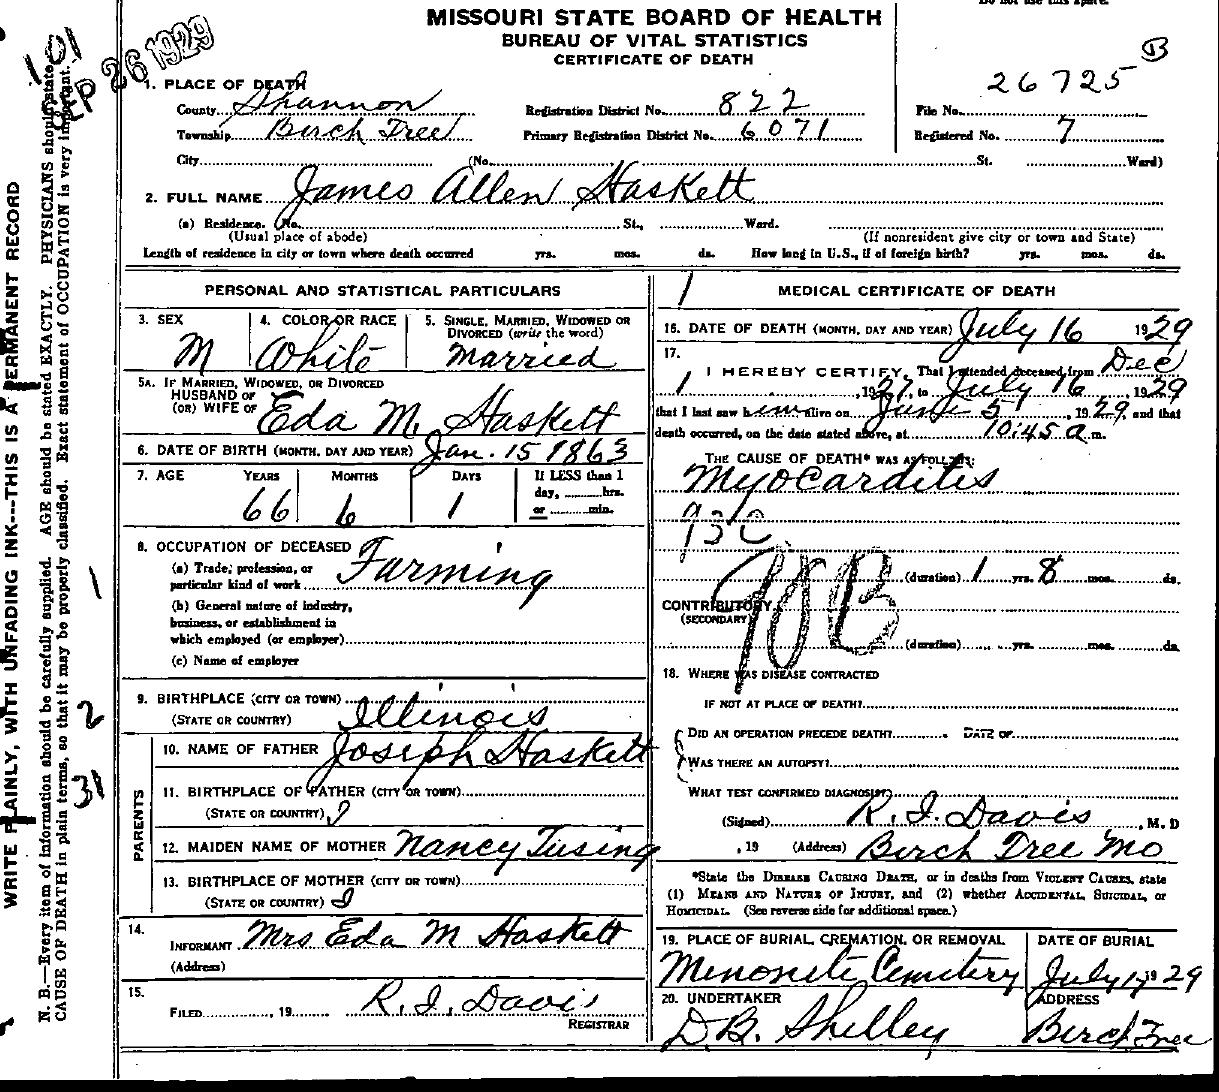 MISSOURI STATE BOARD OF HEALTH
BUREAU OF VITAL STATISTICS
CERTIFICATE OF DEATH
101
SEP 26 1929
B
1. PLACE OF DEATH
County Shannon Registration District No. 822 File No. 26725
Township Birch Tree Primary Registration District No. 6071 Registered No. 7
City (No. St. Ward)
2. FULL NAME James Allen Haskett
(a) Residence. No. St., Ward.
(Usual place of abode) (If nonresident give city or town and State)
Length of residence in city or town where death occurred yrs. mos. ds. How long in U.S., if of foreign birth? yrs. mos. ds.
PERSONAL AND STATISTICAL PARTICULARS
3. SEX 4. COLOR OR RACE 5. SINGLE, MARRIED, WIDOWED OR DIVORCED (write the word)
M White Married
5A. IF MARRIED, WIDOWED, OR DIVORCED
HUSBAND OF
(OR) WIFE OF Eda M. Haskett
6. DATE OF BIRTH (MONTH, DAY AND YEAR) Jan. 15 1863
7. AGE YEARS MONTHS DAYS If LESS than 1
day, hrs.
or min.
66 6 1
8. OCCUPATION OF DECEASED
(a) Trade, profession, or
particular kind of work Farming
(b) General nature of industry,
business, or establishment in
which employed (or employer)
(c) Name of employer
9. BIRTHPLACE (CITY OR TOWN)
(STATE OR COUNTRY) Illinois
PARENTS
10. NAME OF FATHER Joseph Haskett
11. BIRTHPLACE OF FATHER (CITY OR TOWN)
(STATE OR COUNTRY)
12. MAIDEN NAME OF MOTHER Nancy Tusing
13. BIRTHPLACE OF MOTHER (CITY OR TOWN)
(STATE OR COUNTRY)
14.
INFORMANT Mrs Eda M Haskett
(Address)
15.
FILED , 19 R. I. Davis
REGISTRAR
1 MEDICAL CERTIFICATE OF DEATH
16. DATE OF DEATH (MONTH, DAY AND YEAR) July 16 1929
17.
I HEREBY CERTIFY, That I attended deceased from Dec
1, 1927, to July 16, 1929
that I last saw him alive on June 5, 1929, and that
death occurred, on the date stated above, at 10:45 a m.
THE CAUSE OF DEATH* WAS AS FOLLOWS:
Myocarditis
93C
90B
(duration) 1 yrs. 8 mos. ds.
CONTRIBUTORY
(SECONDARY)
(duration) yrs. mos. ds.
18. WHERE WAS DISEASE CONTRACTED
IF NOT AT PLACE OF DEATH?
DID AN OPERATION PRECEDE DEATH? DATE OF
WAS THERE AN AUTOPSY?
WHAT TEST CONFIRMED DIAGNOSIS?
(Signed) R. I. Davis, M. D
, 19 (Address) Birch Tree Mo
*State the DISEASE CAUSING DEATH, or in deaths from VIOLENT CAUSES, state
(1) MEANS AND NATURE OF INJURY, and (2) whether ACCIDENTAL, SUICIDAL, or
HOMICIDAL. (See reverse side for additional space.)
19. PLACE OF BURIAL, CREMATION, OR REMOVAL DATE OF BURIAL
Menonite Cemetery July 17 1929
20. UNDERTAKER ADDRESS
D.B. Shelley Birch Tree
WRITE PLAINLY, WITH UNFADING INK---THIS IS A PERMANENT RECORD
N. B.—Every item of information should be carefully supplied. AGE should be stated EXACTLY. PHYSICIANS should state
CAUSE OF DEATH in plain terms, so that it may be properly classified. Exact statement of OCCUPATION is very important.
1
2
31